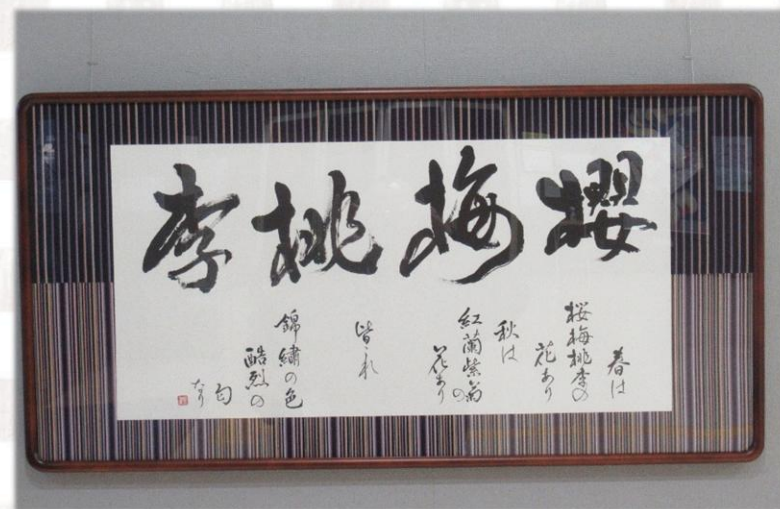 櫻梅桃李
春は
桜梅桃李の
花あり
秋は
紅蘭紫菊の
花あり
皆これ
錦繍の色
酷烈の
匂
なり